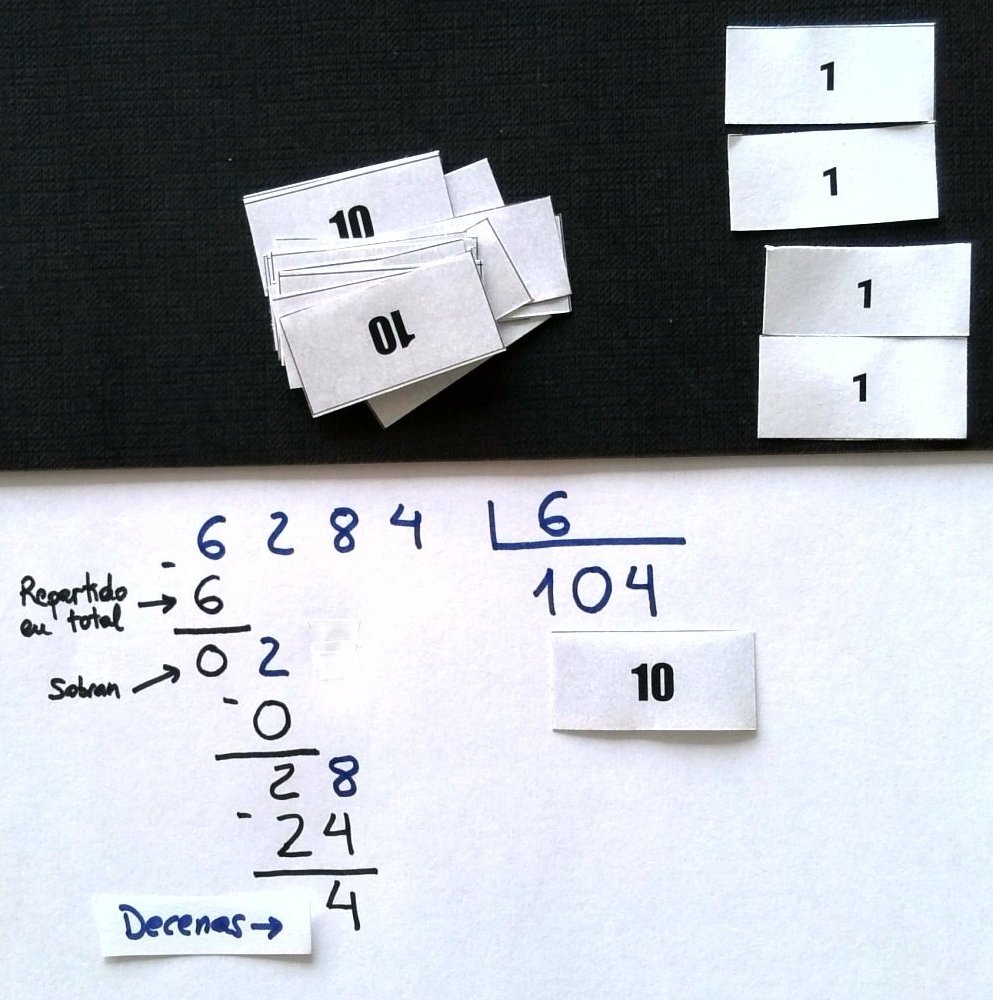 1
1
10
1
10
1
6 2 8 4 6
- 6 104
Repartido
en total →
0 2
Sobran →
10
- 0
2 8
- 2 4
4
Decenas →